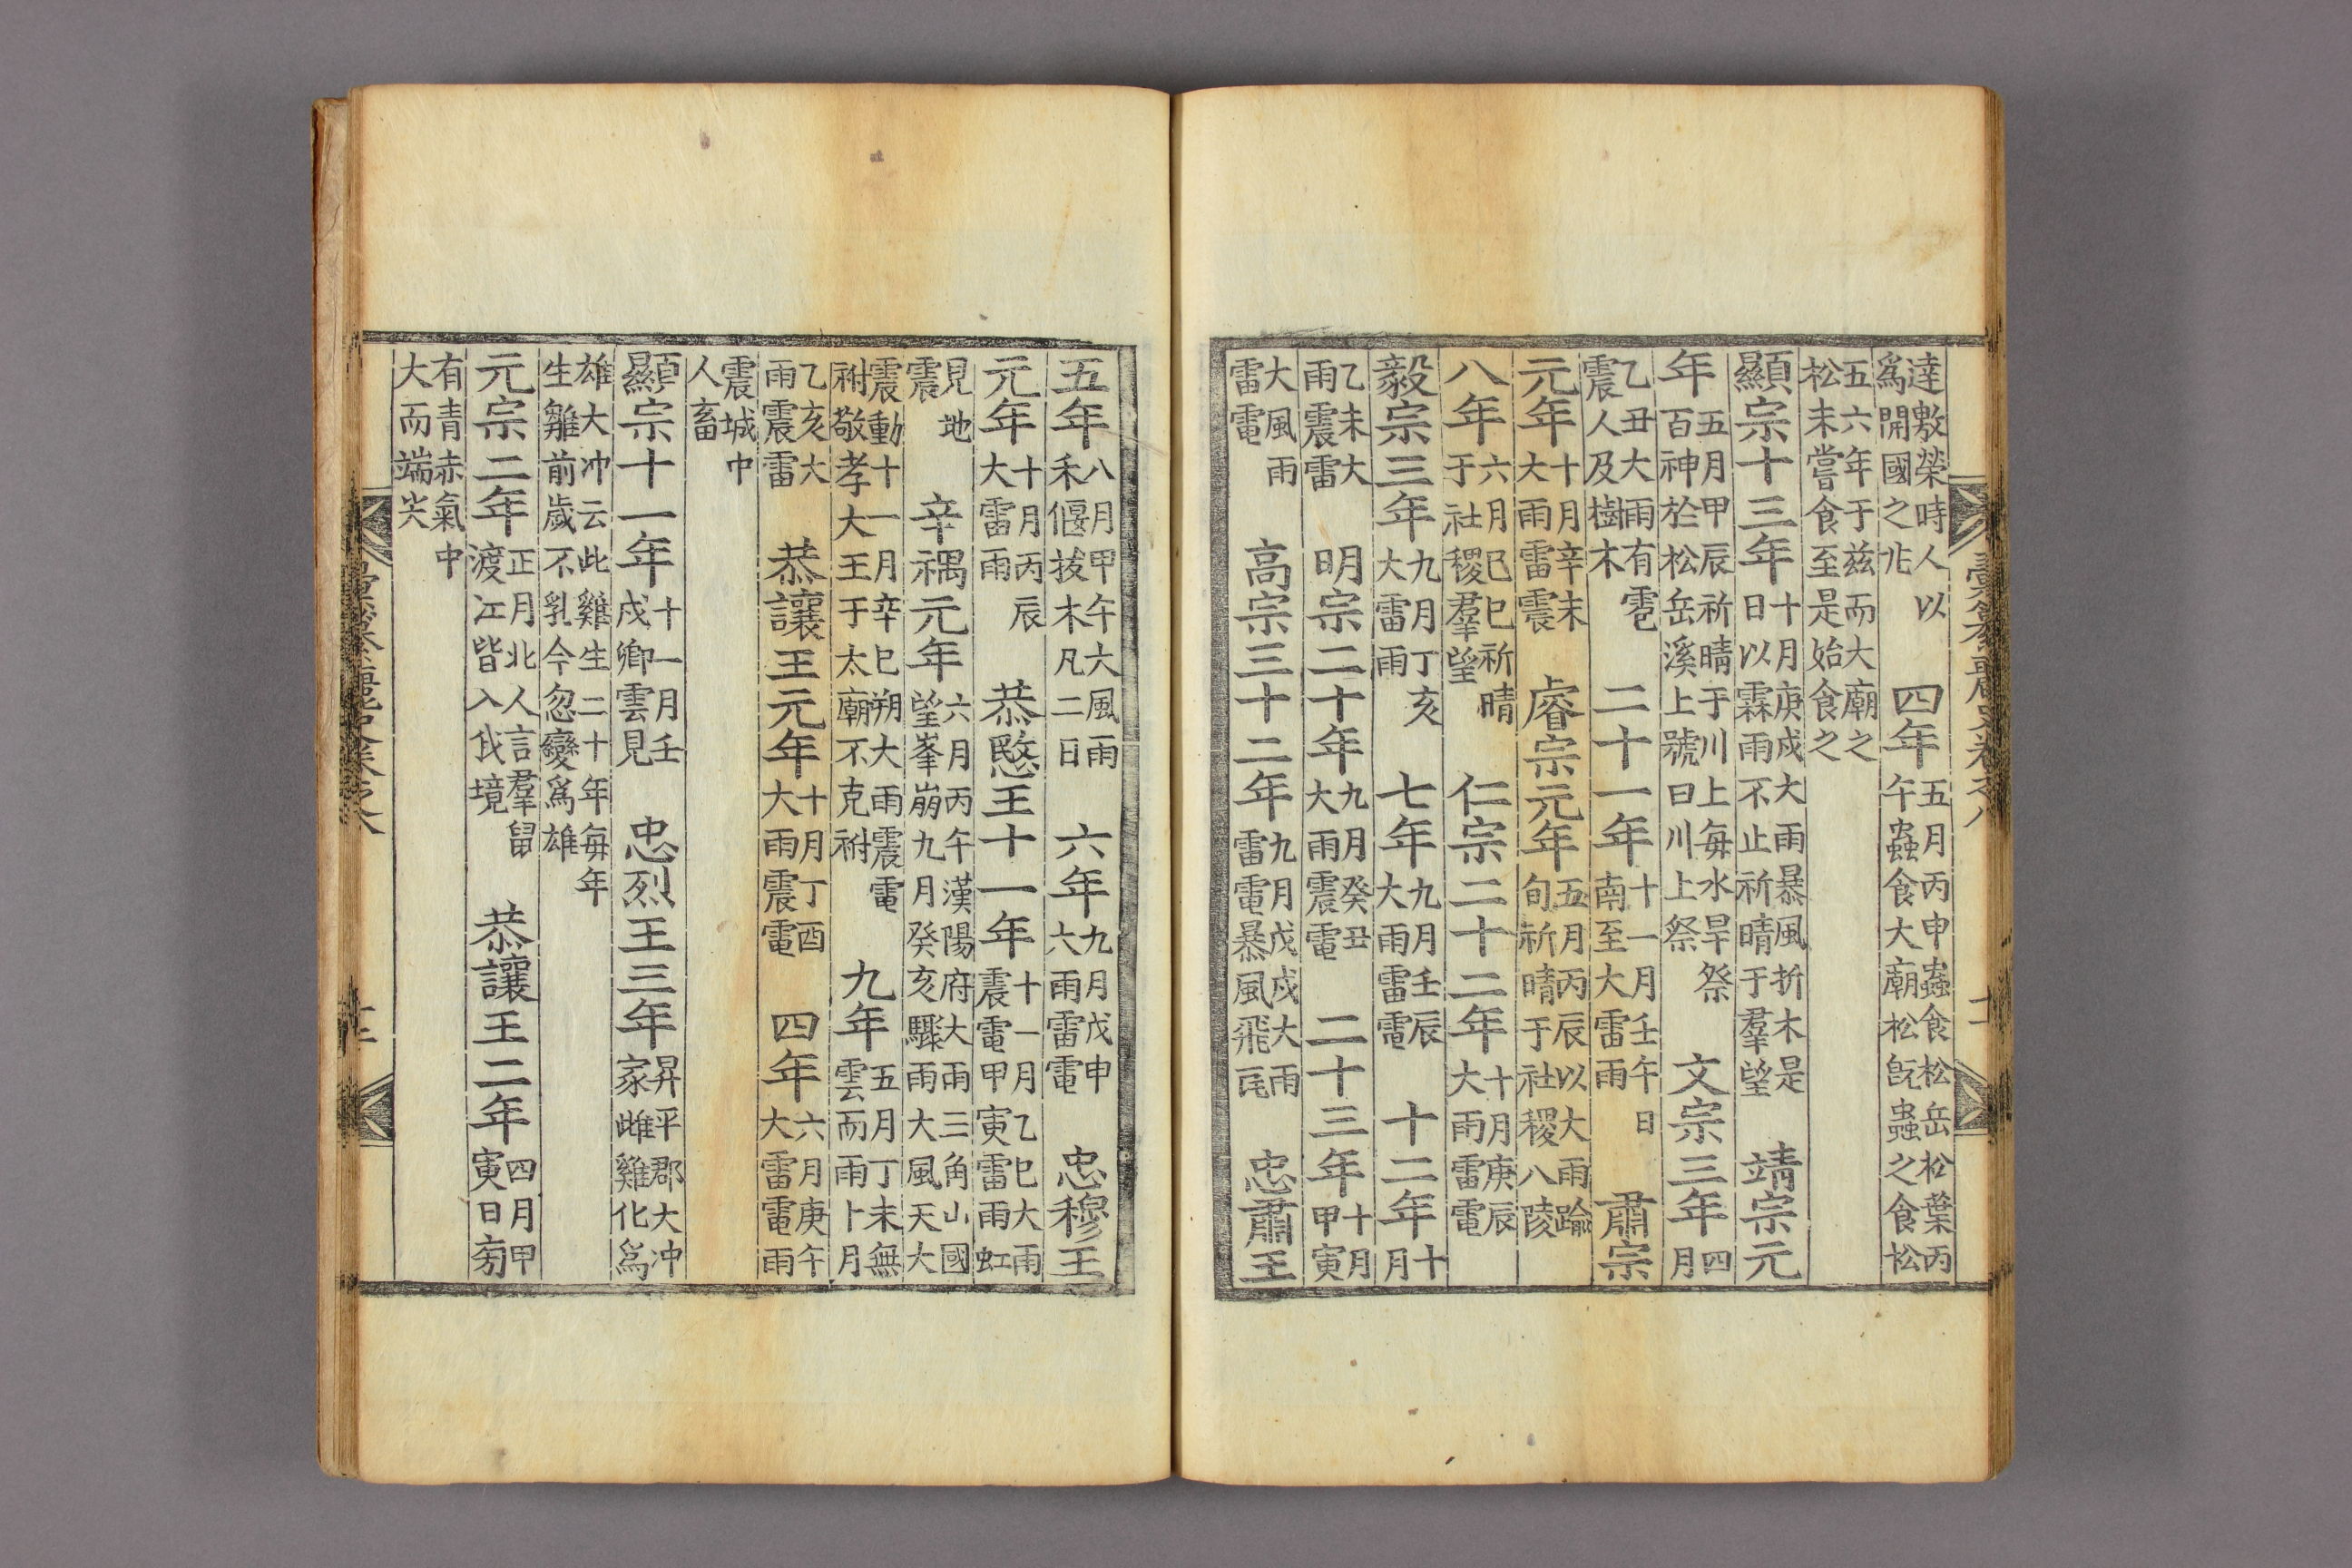 達敷榮時人以爲開國之兆 四年 五月丙申蟲食松岳松葉丙午蟲食大廟松旣蟲之食松
五六年于兹而大廟之松未嘗食至是始食之
顯宗十三年 十月庚戌大雨暴風折木是日以霖雨不止祈晴于羣望 靖宗元
年 五月甲辰祈晴于川上每水旱祭百神於松岳溪上號曰川上祭 文宗三年 四月
乙丑大雨有雹震人及樹木 二十一年 十一月壬午日南至大雷雨 肅宗
元年 十月辛未大雨雷震 睿宗元年 五月丙辰以大雨踰旬祈晴于社稷八陵
八年 六月己巳祈晴于社稷羣望 仁宗二十二年 十月庚辰大雨雷電
毅宗三年 九月丁亥大雷雨 七年 九月壬辰大雨雷電 十二年 十月
乙未大雨震雷 明宗二十年 九月癸丑大雨震電 二十三年 十月甲寅
大風雨雷電 高宗三十二年 九月戊戌大雨雷電暴風飛瓦 忠肅王
五年 八月甲午大風雨禾偃拔木凡二日 六年 九月戊申六雨雷電 忠穆王
元年 十月丙辰大雷雨 恭愍王十一年 十一月乙巳大雨震電甲寅雷雨虹
見地震 辛禑元年 六月丙午漢陽府大雨三角山國望峯崩九月癸亥驟雨大風天大
震動十一月辛巳朔大雨震電祔敬孝大王于太廟不克祔 九年 五月丁未無雲而雨卜月
乙亥大雨震雷 恭讓王元年 十月丁酉大雨震電 四年 六月庚午大雷電雨
震城中人畜
顯宗十一年 十一月壬戌卿雲見 忠烈王三年 昇平郡大冲家雌雞化爲
雄大冲云此雞生二十年每年生雛前歲不乳今忽變爲雄
元宗二年 正月北人言羣鼠渡江皆入我境 恭讓王二年 四月甲寅日旁
有青赤氣中大而端尖